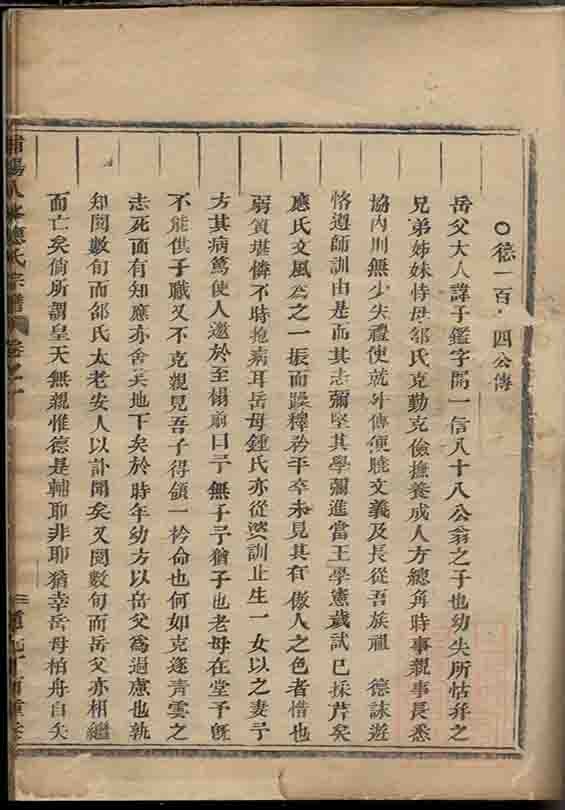 德一百·四公傳
岳父大人諱子鑑字開一信八十八公翁之子也幼失所怙幷之
兄弟姊妹恃母邹氏克勤克儉撫養成人方總角時事親事長悉
協內則無少失禮使就外傳便曉文義及長從吾族祖 德誄遊
恪遵師訓由是而其志彌堅其學彌進當王學憲歲試已採芹矣
應氏文風為之一振而躁釋矜平卒未見其有傲人之色者惜也
弱質堪憐不時抱病耳岳母鍾氏亦從 訓止生一女以之妻予
方其病篤使人邀於至榻前曰予無子予猶子也老母在堂予旣
不能供子職又不克親見吾子得領一衿命也何如克遂青雲之
志死而有知應亦含笑地下矣於時年幼方以岳父為過慮也孰
知閱數旬而邹氏太老安人以訃聞矣又閱數旬而岳父亦相繼
而亡矣倘所謂皇天無親惟德是輔耶非耶猶幸岳母柏舟自矢
浦陽八 應氏宗譜 卷之十